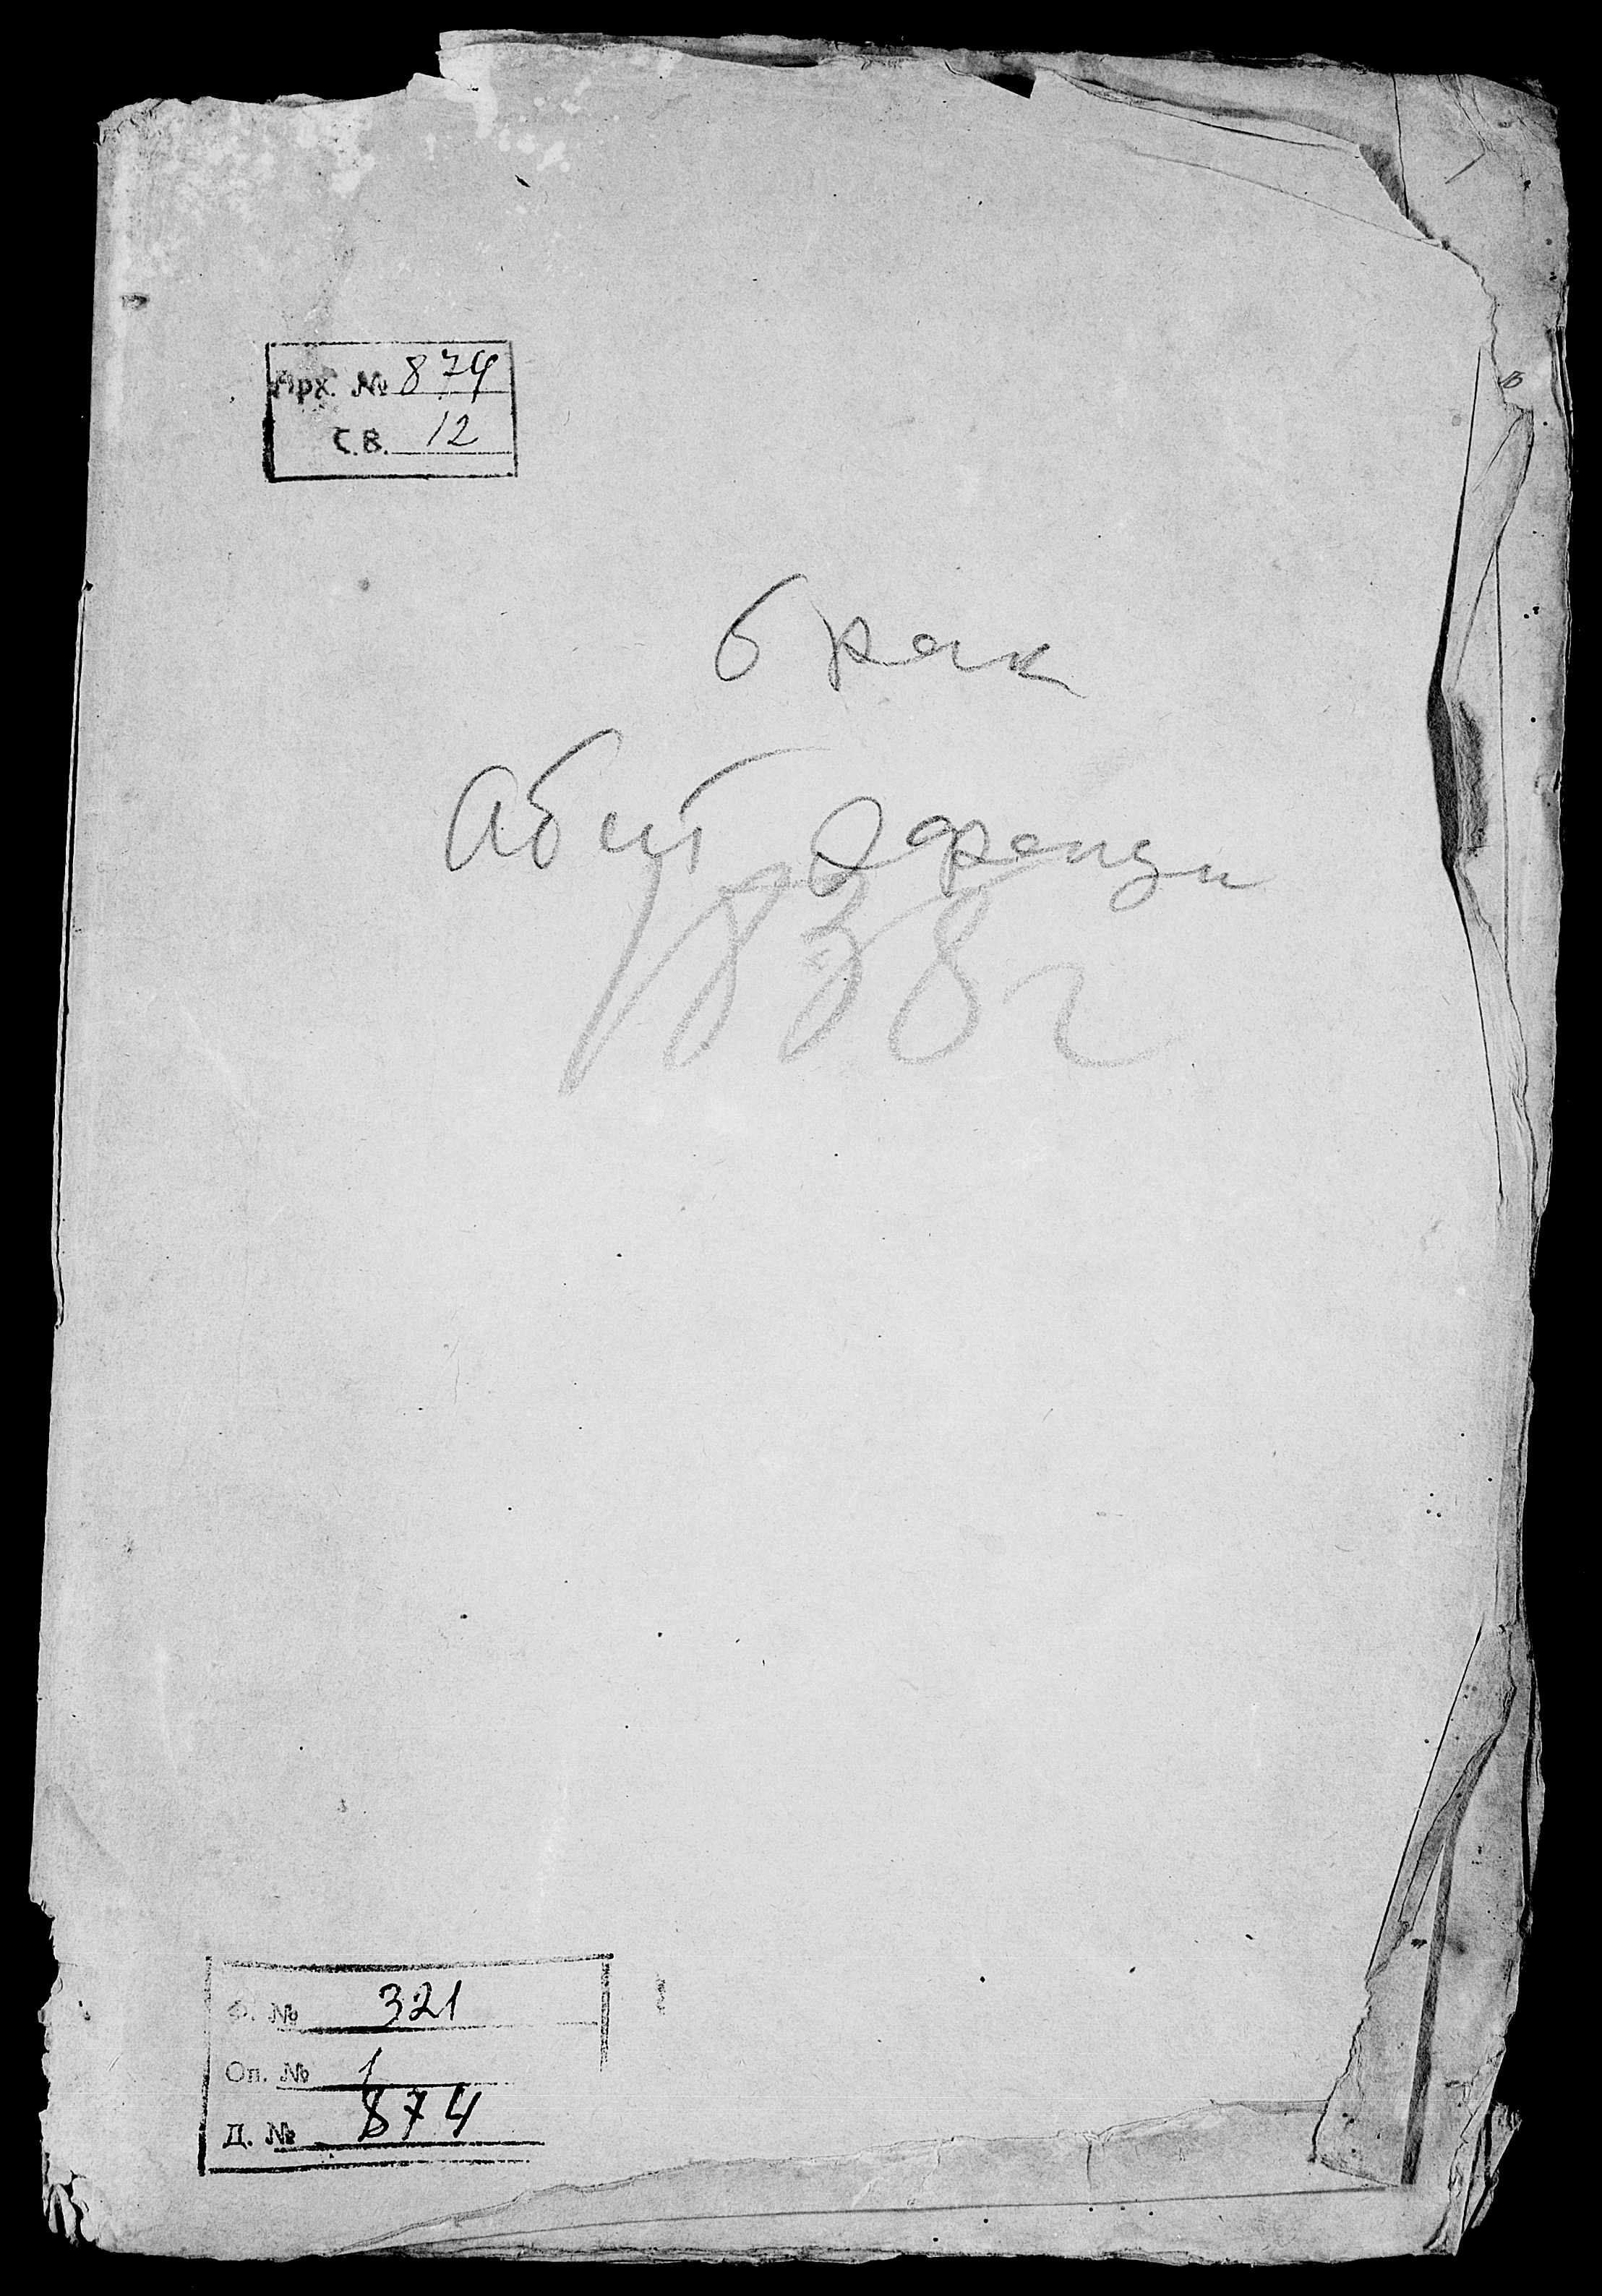 Арх. № 874
С.В. 12
брак
Абит Эфенди
1838 г
Ф. № 321
Оп. № 1
Д. № 874